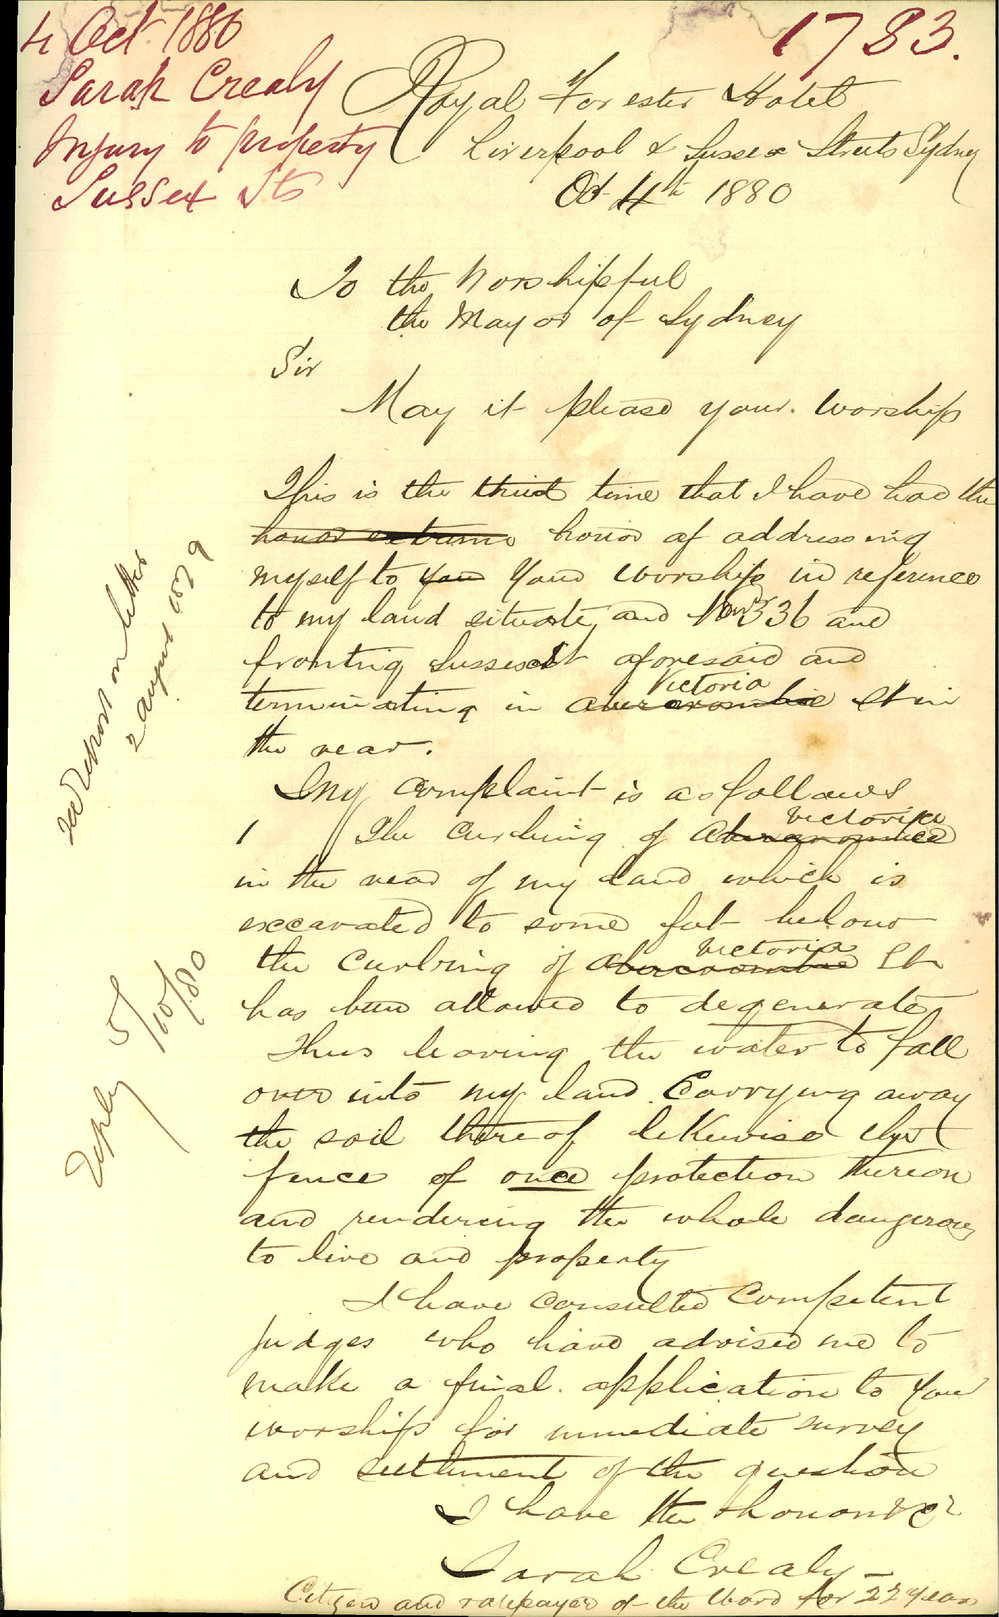 4 Oct 1880
Sarah Crealy
Injury to property
Sussex St
1783.
Royal Forester Hotel
Liverpool & Sussex Streets Sydney
Oct 4th 1880
To the Worshipful
the Mayor of Sydney
Sir
May it please your Worship
This is the third time that I have had the
honor extreme honor of addressing
myself to You Your Worship in reference
to my land situate and 336 and
fronting Sussex St aforesaid and
Victoria
terminating in Abercrombie St in
the rear.
My Complaint is as follows
Victoria
1 The Curbing of Abercrombie
in the rear of my land which is
excavated to some feet below
Victoria
the Curbing of Abercrombie St
has been allowed to degenerate
Thus leaving the water to fall
over into my land Carrying away
the soil thereof likewise the
fence of once protection thereon
and rendering the whole dangerous
to live and property
I have Consulted Competent
judges who have advised me to
make a final application to Your
worship for immediate survey
and settlement of the question
I have the honor &c
Sarah Crealy
Citizen and ratepayer of the Ward for 22 years
Report on letter
2 August 1879
Reply 5/10/80